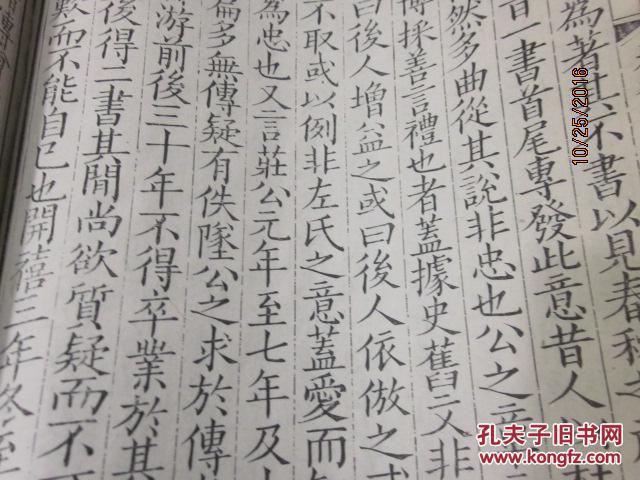 為著其不書以見春秋之
首一書首尾專發此意昔人
然多曲從其說非忠也公之意
博採善言禮也者蓋據史舊文非
曰後人增益之或曰後人依倣之或
不取或以例非左氏之意蓋愛而
為忠也又言莊公元年至七年及
偏多無傳疑有佚墜公之求於傳
游前後三十年不得卒業於其
後得二書其閒尚欲質疑而不
夥而不能自已也開禧三年冬至
10/25/2016
孔夫子旧书网
www.kongfz.com